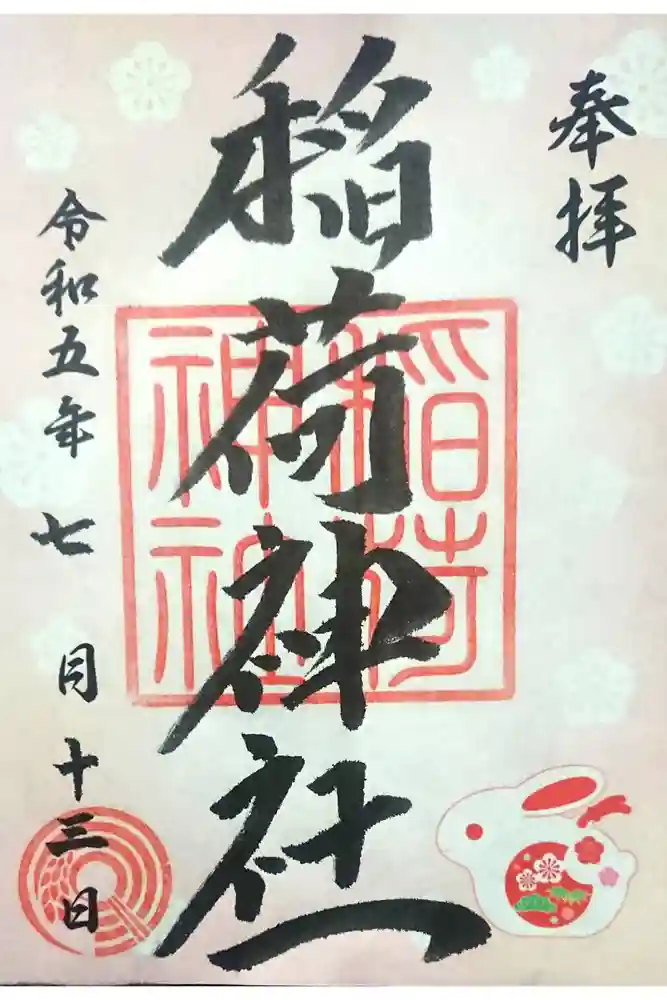 奉拝
稲荷神社
稲荷神社
令和五年七月十三日